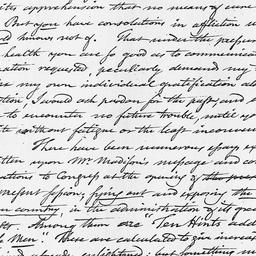 its apprehension that no means of cure
But you have consolations in affliction
knows not of. That under the present
health you are so good as to communicate
ation requested, peculiarly demand my
my own individual gratification
I would ask pardon for the past, and
to encounter no future trouble, until
it without fatigue or the least
There have been numerous essays
tten upon Mr. Madison's message and
ations to Congress at the opening of the
present session, fixing out and exposing the
country, in the administration of its
Among them are "Ten Hints
Men." These are calculated to give
already enlightened; but something